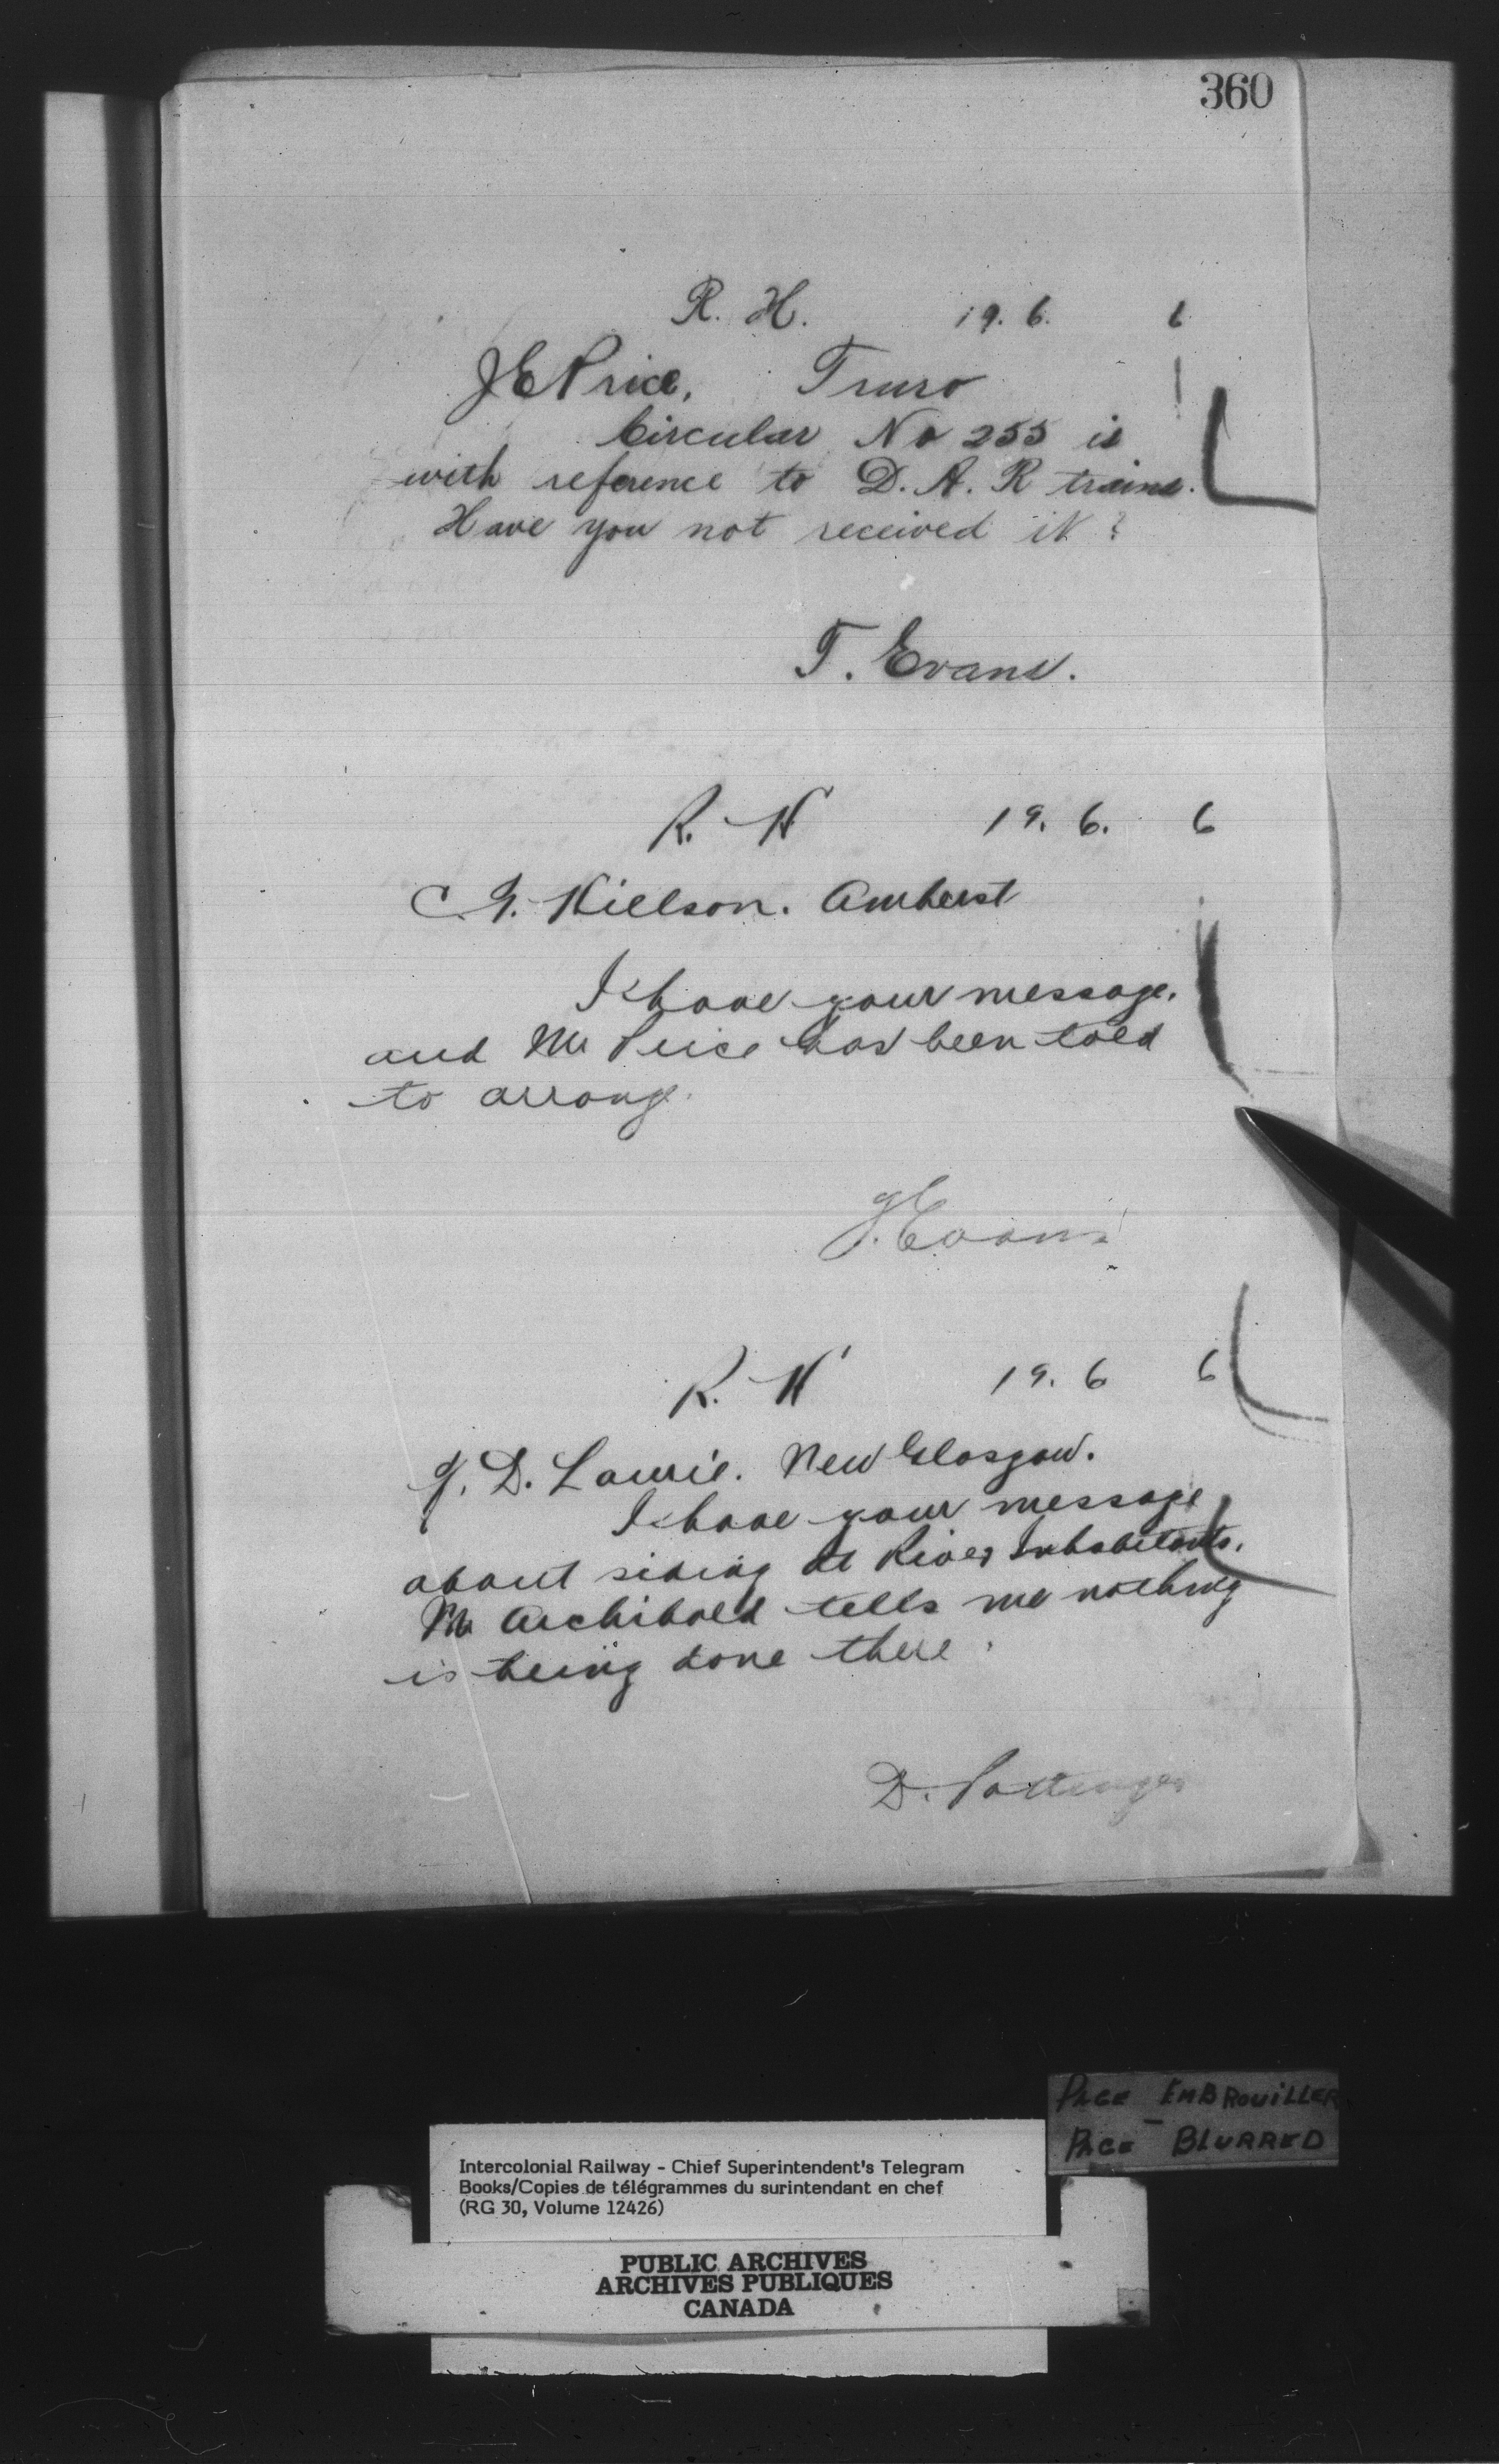 360
R. H. 19. 6. 6
J E Price, Truro
Circular No 255 is
with reference to D. A. R trains.
Have you not received it?
T. Evans.
R. H 19. 6. 6
Amherst
I have your message.
and Mr Price has been told
to arrange.
T. Evans
R. H 19. 6 6
J. D. Lawrie. New Glasgow.
I have your message
about siding at River Inhabitants.
Mr Archibald tells me nothing
is being done there.
D. Pottinger
PAGE EMBROUILLER
PAGE BLURRED
Intercolonial Railway - Chief Superintendent's Telegram
Books/Copies de télégrammes du surintendant en chef
(RG 30, Volume 12426)
PUBLIC ARCHIVES
ARCHIVES PUBLIQUES
CANADA